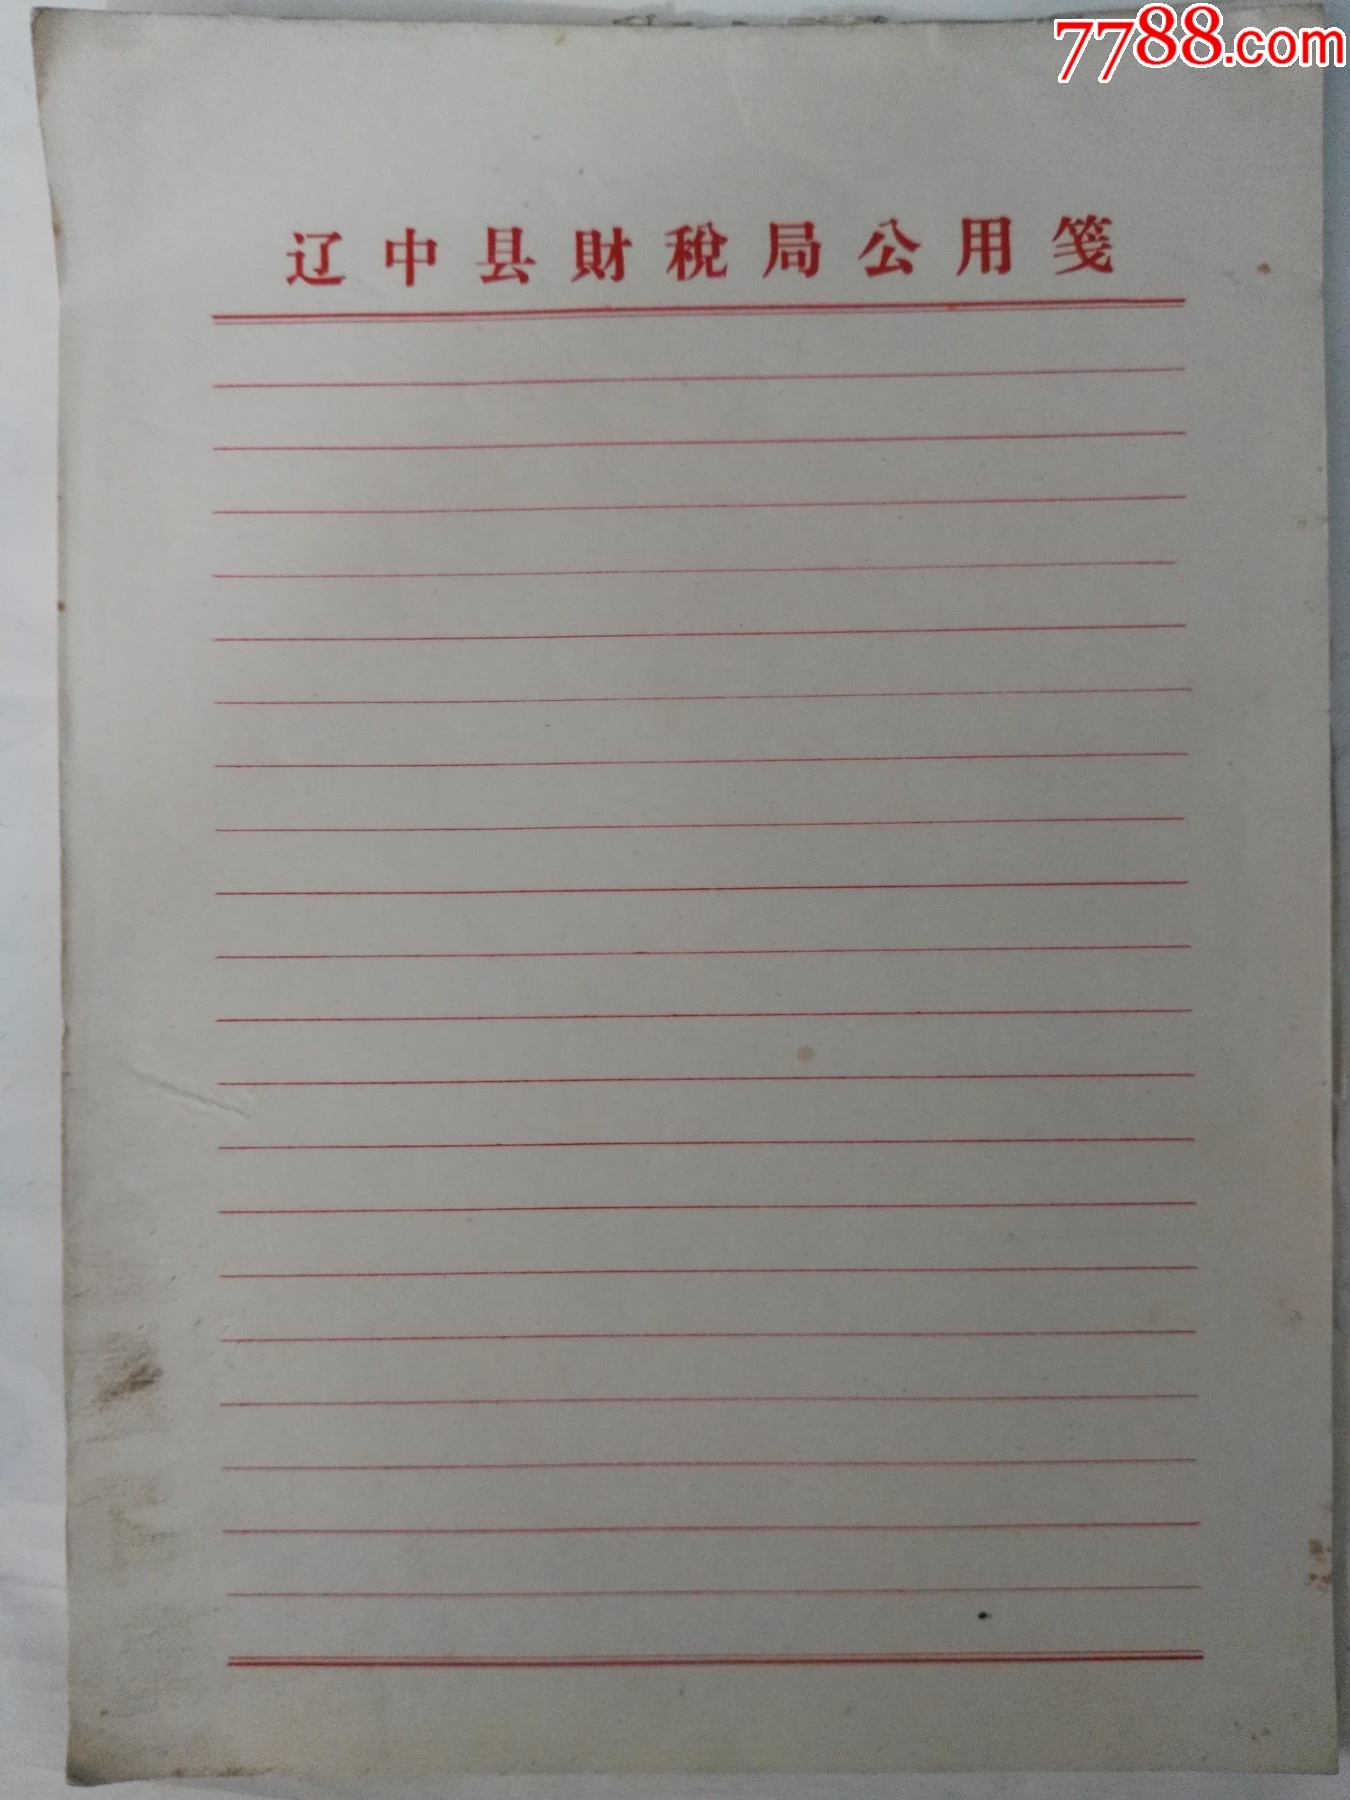 7788.com
辽中县財稅局公用笺